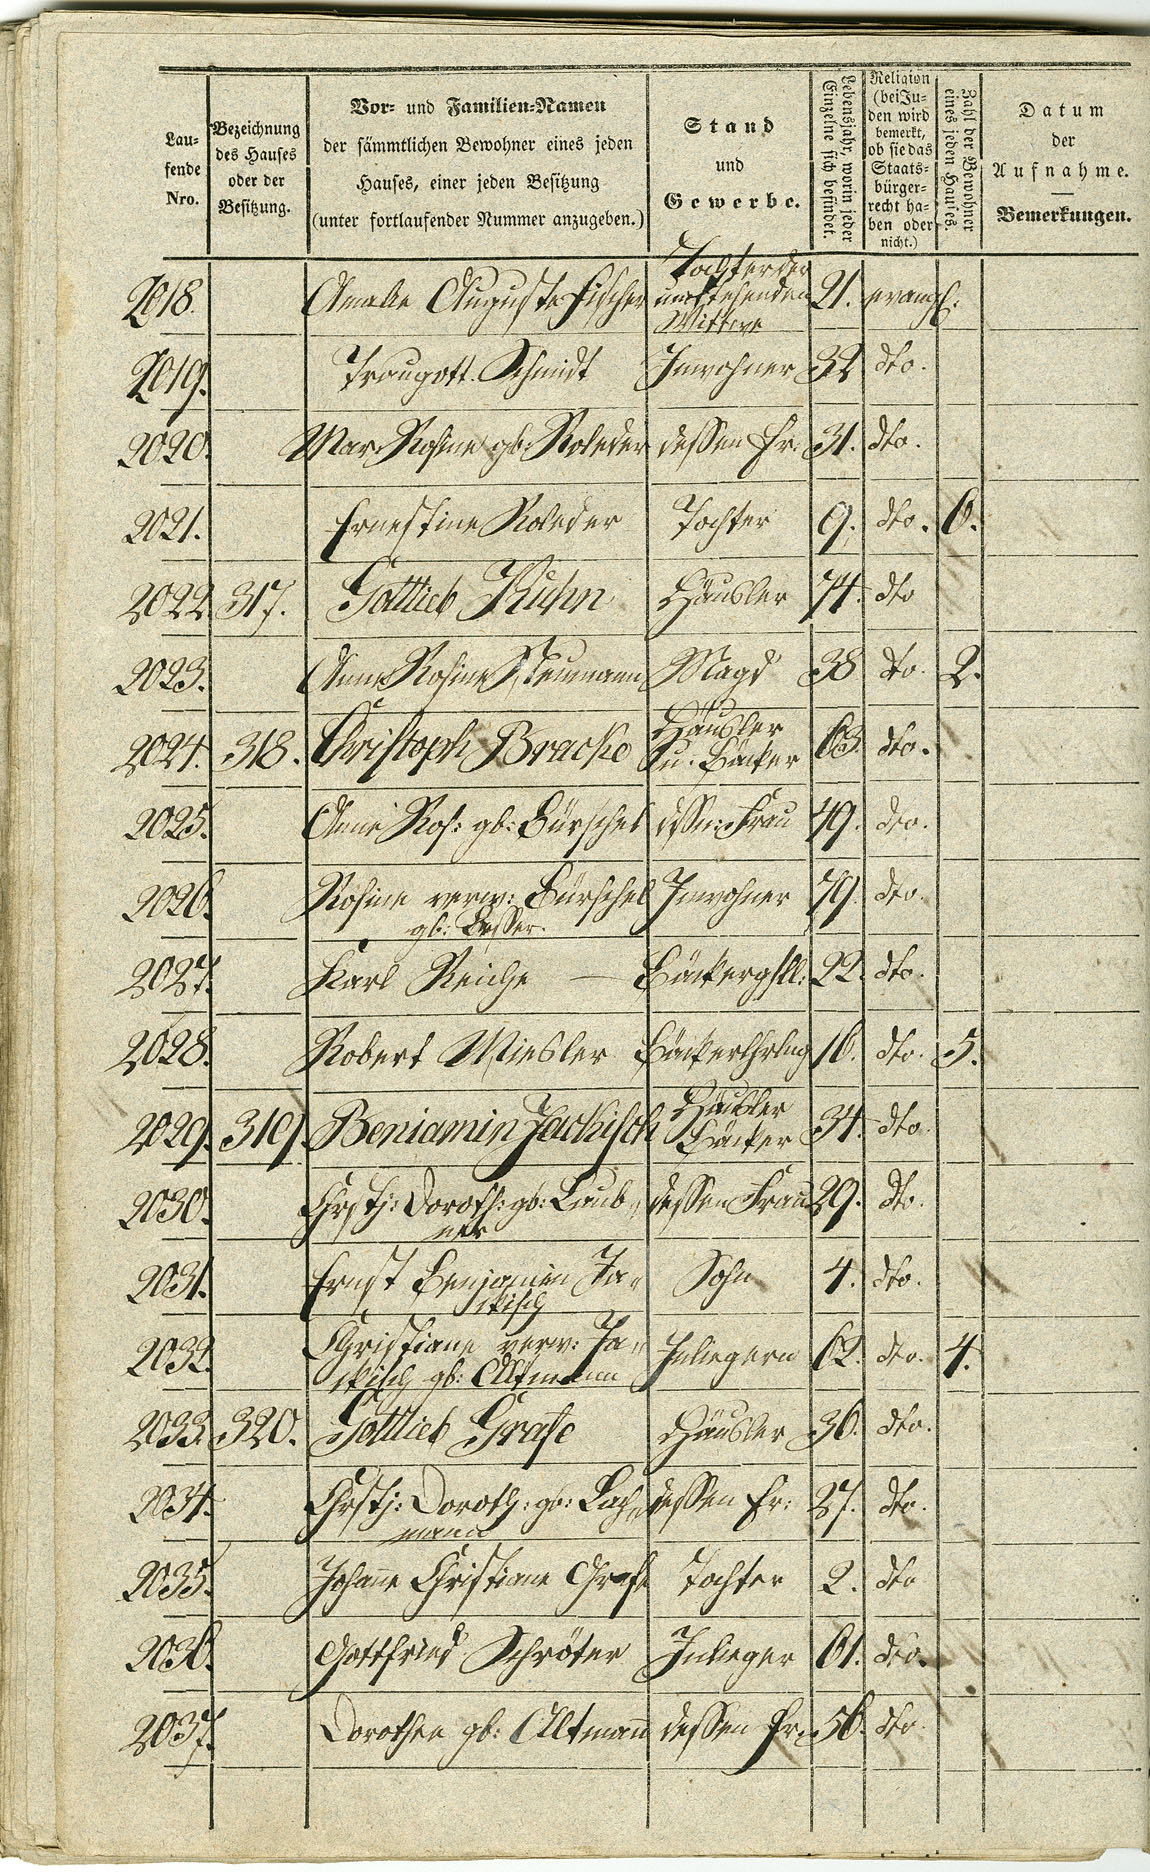 Lau-
fende
Nro.
Bezeichnung
des Hauses
oder der
Besitzung.
Vor- und Familien-Namen
der sämmtlichen Bewohner eines jeden
Hauses, einer jeden Besitzung
(unter fortlaufender Nummer anzugeben.)
Stand
und
Gewerbe.
Lebensjahr, worin jeder
Einzelne sich befindet.
Religion
(bei Ju-
den wird
bemerkt,
ob sie das
Staats-
bürger-
recht ha-
ben oder
nicht.)
Zahl der Bewohner
eines jeden Hauses.
Datum
der
Aufnahme.
Bemerkungen.
2018. Amalie Auguste Fischer Tochter der umstehenden Wittwe 21. evangl.
2019. Traugott Schmidt Inwohner 32 dto.
2020. Mar. Rosine gb: Roleder dessen Fr. 31. dto.
2021. Ernestine Roleder Tochter 9. dto. 6.
2022. 317. Gottlieb Kuhn Häusler 74. dto
2023. Anne Rosine Neumann Magd 38 dto. 2.
2024. 318. Christoph Bracke Häusler u. Bäcker 63. dto.
2025. Anne Ros: gb: Bürschel dssn: Frau 49. dto.
2026. Rosine verw: Bürschel gb: Besser. Inwohner 79. dto.
2027. Karl Reiche — Bäckergsll: 22. dto.
2028. Robert Miesler Bäckerlhrlng 16. dto. 5.
2029. 319. Beniamin Jackisch Häusler Bäcker 34. dto.
2030. Chrstj: Doroth: gb: Laub- ner dessen Frau 29. dto.
2031. Ernst Benjamin Ja- ckisch Sohn 4. dto.
2032. Christiane verw: Ja- ckisch gb: Altmann Inliegern 62. dto. 4.
2033. 320. Gottlieb Grafe Häusler 36. dto.
2034. Chrstj: Doroth: gb: Bach- mann dessen Fr: 27. dto.
2035. Johanne Christiane Grafe Tochter 2. dto
2036. Gottfried Schröter Inlieger 61. dto.
2037. Dorothea gb: Altmann dessen Fr. 56. dto.